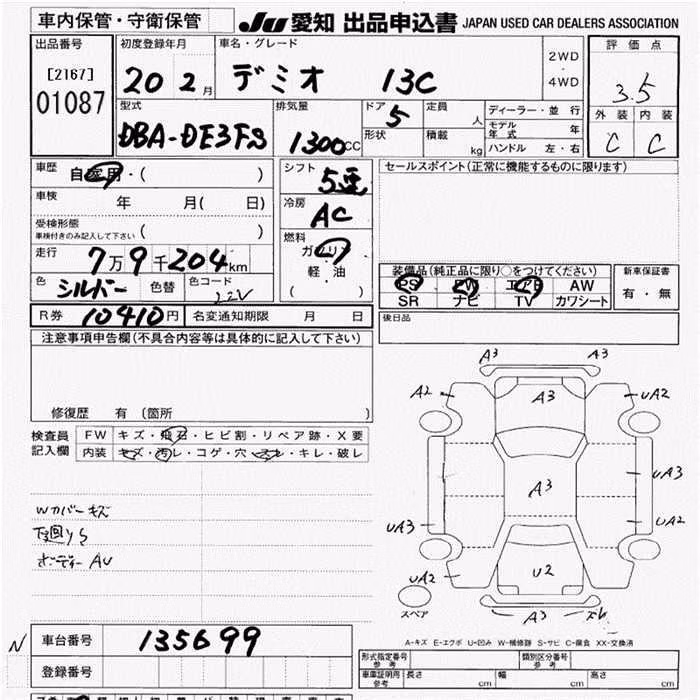 車内保管・守衛保管
JU 愛知 出品申込書 JAPAN USED CAR DEALERS ASSOCIATION
出品番号 初度登録年月 車名・グレード 2WD・4WD 評価点
[2167] 01087 20 2月 デミオ 13C 3.5
型式 排気量 ドア 定員 人 ディーラー・並行 外装 内装
DBA-DE3FS 1300cc 5 形状 積載 kg モデル年式 年 C C
ハンドル 左・右
車歴 自家用・( ) シフト 5速 セールスポイント(正常に機能するものに限ります)
車検 年 月( 日) 冷房 AC
受検形態 ( )
車検付きのみ記入して下さい
燃料 ガソリン
軽・油
( )
走行 7万9千204km
色 シルバー 色替 色コード 22V
装備品(純正品に限り○をつけてください) 新車保証書
PS PW エアB AW 有・無
SR ナビ TV カワシート
R券 10410円 名変通知期限 月 日
後日品
注意事項申告欄(不具合内容等は具体的に記入して下さい)
修復歴 有(箇所 )
検査員記入欄 FW キズ・飛石・ヒビ割・リペア跡・X要
内装 キズ・汚レ・コゲ・穴・スレ・キレ・破レ
A3 A3
A2 A3 UA2
UA3
A3
UA3 UA2
UA2 U2
スペア A3 スレ
Wカバーキズ
下廻りS
ボディーAU
A-キズ E-エクボ U-凹み W-補修跡 S-サビ C-腐食 XX-交換済
N 車台番号 135699
登録番号
形式指定番号 参考 類別区分番号 参考
車庫証明用 参考 長さ cm 幅 cm 高さ cm